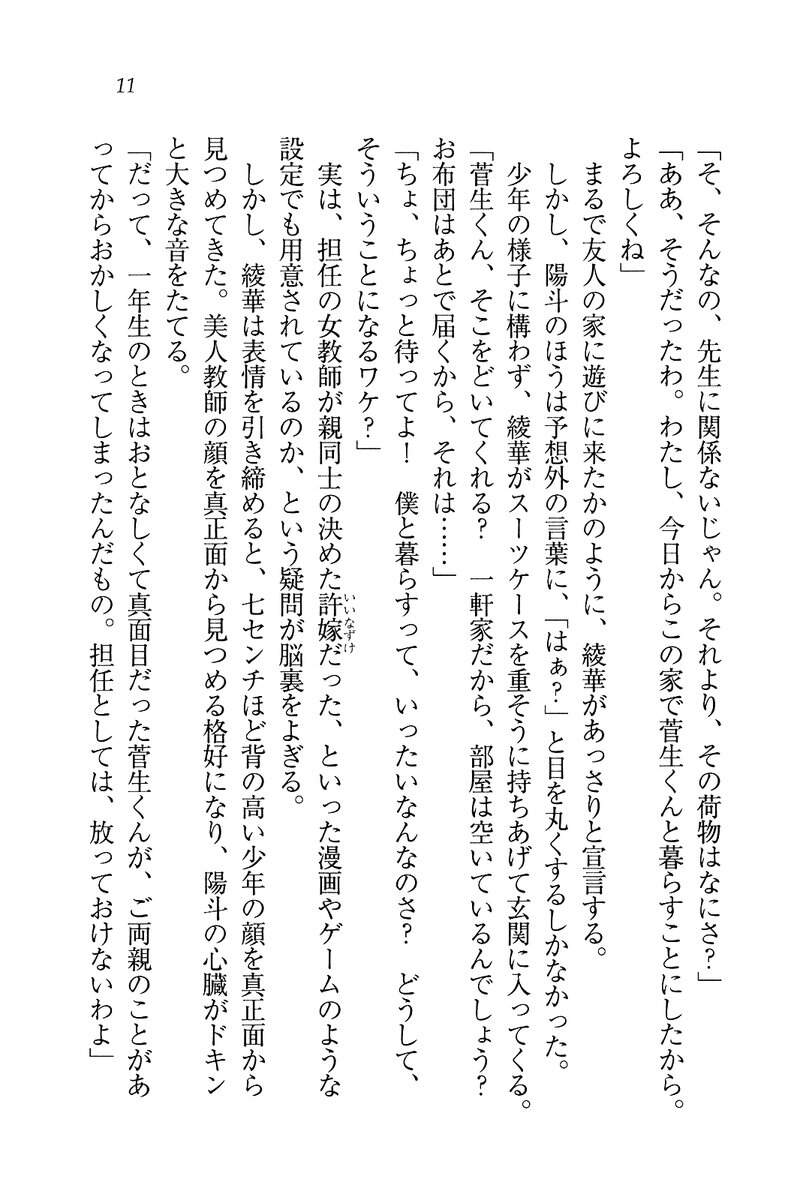 11
「そ、そんなの、先生に関係ないじゃん。それより、その荷物はなにさ？」
「ああ、そうだったわ。わたし、今日からこの家で菅生くんと暮らすことにしたから。
よろしくね」
　まるで友人の家に遊びに来たかのように、綾華があっさりと宣言する。
　しかし、陽斗のほうは予想外の言葉に、「はぁ？」と目を丸くするしかなかった。
　少年の様子に構わず、綾華がスーツケースを重そうに持ちあげて玄関に入ってくる。
「菅生くん、そこをどいてくれる？　一軒家だから、部屋は空いているんでしょう？
お布団はあとで届くから、それは……」
「ちょ、ちょっと待ってよ！　僕と暮らすって、いったいなんなのさ？　どうして、
そういうことになるワケ？」
　実は、担任の女教師が親同士の決めた許嫁だった、といった漫画やゲームのような
いいなずけ
設定でも用意されているのか、という疑問が脳裏をよぎる。
　しかし、綾華は表情を引き締めると、七センチほど背の高い少年の顔を真正面から
見つめてきた。美人教師の顔を真正面から見つめる格好になり、陽斗の心臓がドキン
と大きな音をたてる。
「だって、一年生のときはおとなしくて真面目だった菅生くんが、ご両親のことがあ
ってからおかしくなってしまったんだもの。担任としては、放っておけないわよ」